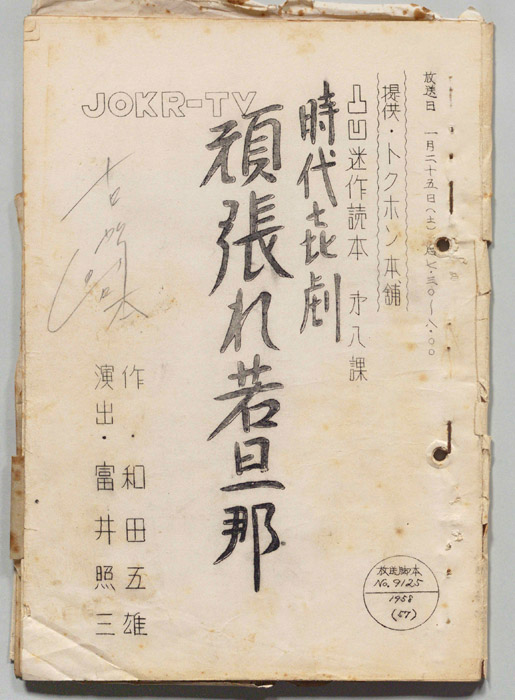 放送日 一月二十五日(土)后七・三〇~八・〇〇
提供・トクホン本舗
凸凹迷作読本 才八課
時代喜劇
頑張れ若旦那
JOKR-TV
作・和田五雄
演出・富井照三
放送脚本
No.9125
1958
(57)